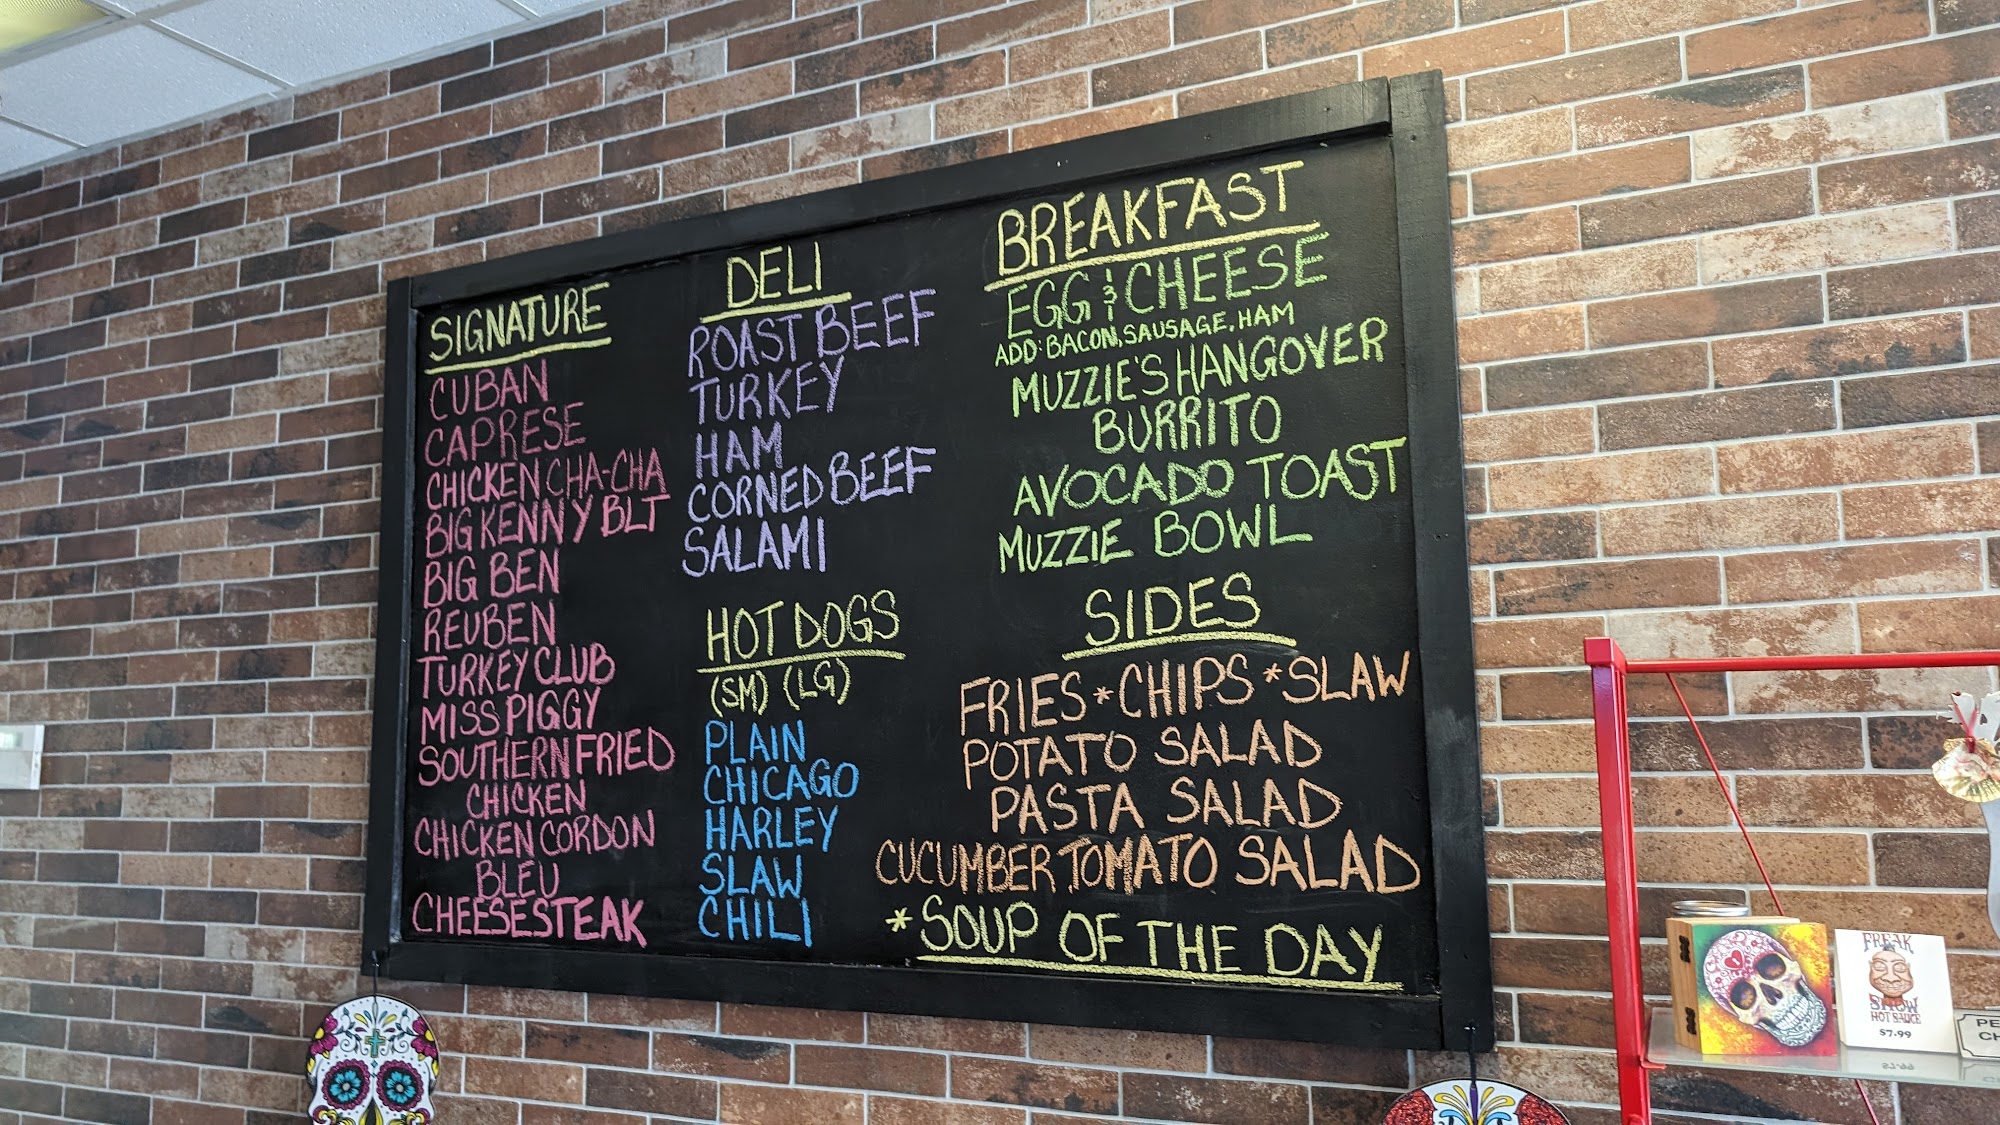 SIGNATURE
CUBAN
CAPRESE
CHICKEN CHA-CHA
BIG KENNY BLT
BIG BEN
REUBEN
TURKEY CLUB
MISS PIGGY
SOUTHERN FRIED
CHICKEN
CHICKEN CORDON
BLEU
CHEESESTEAK
DELI
ROAST BEEF
TURKEY
HAM
CORNED BEEF
SALAMI
HOT DOGS
(SM) (LG)
PLAIN
CHICAGO
HARLEY
SLAW
CHILI
BREAKFAST
EGG & CHEESE
ADD: BACON, SAUSAGE, HAM
MUZZIE'S HANGOVER
BURRITO
AVOCADO TOAST
MUZZIE BOWL
SIDES
FRIES * CHIPS * SLAW
POTATO SALAD
PASTA SALAD
CUCUMBER TOMATO SALAD
* SOUP OF THE DAY
FREAK
SHOW
HOT SAUCE
$7.99